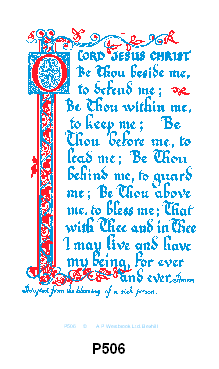 O LORD JESUS CHRIST
Be Thou beside me,
to defend me;
Be Thou within me,
to keep me; Be
Thou before me, to
lead me; Be Thou
behind me, to guard
me; Be Thou above
me, to bless me; That
with Thee and in Thee
I may live and have
my being, for ever
and ever. Amen
Adapted from the blessing of a sick person.
P506 © A P Westbrook Ltd
P506